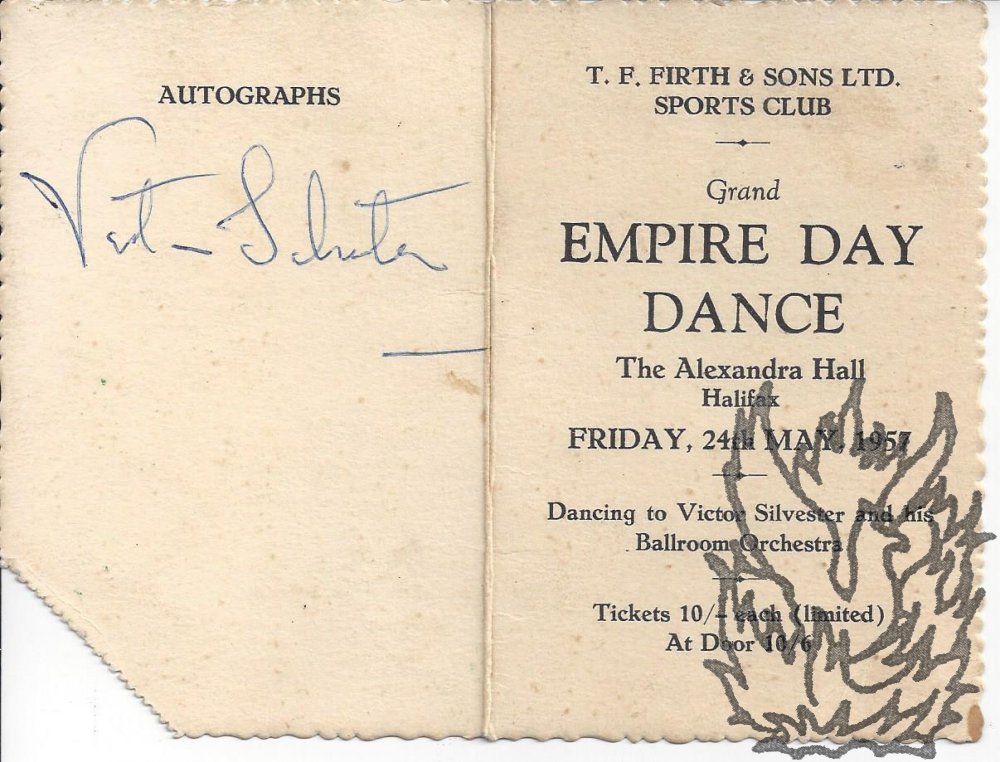 AUTOGRAPHS
Victor Silvester
T. F. FIRTH & SONS LTD.
SPORTS CLUB
Grand
EMPIRE DAY
DANCE
The Alexandra Hall
Halifax
FRIDAY, 24th MAY, 1957
Dancing to Victor Silvester and his
Ballroom Orchestra
Tickets 10/- each (limited)
At Door 10/6